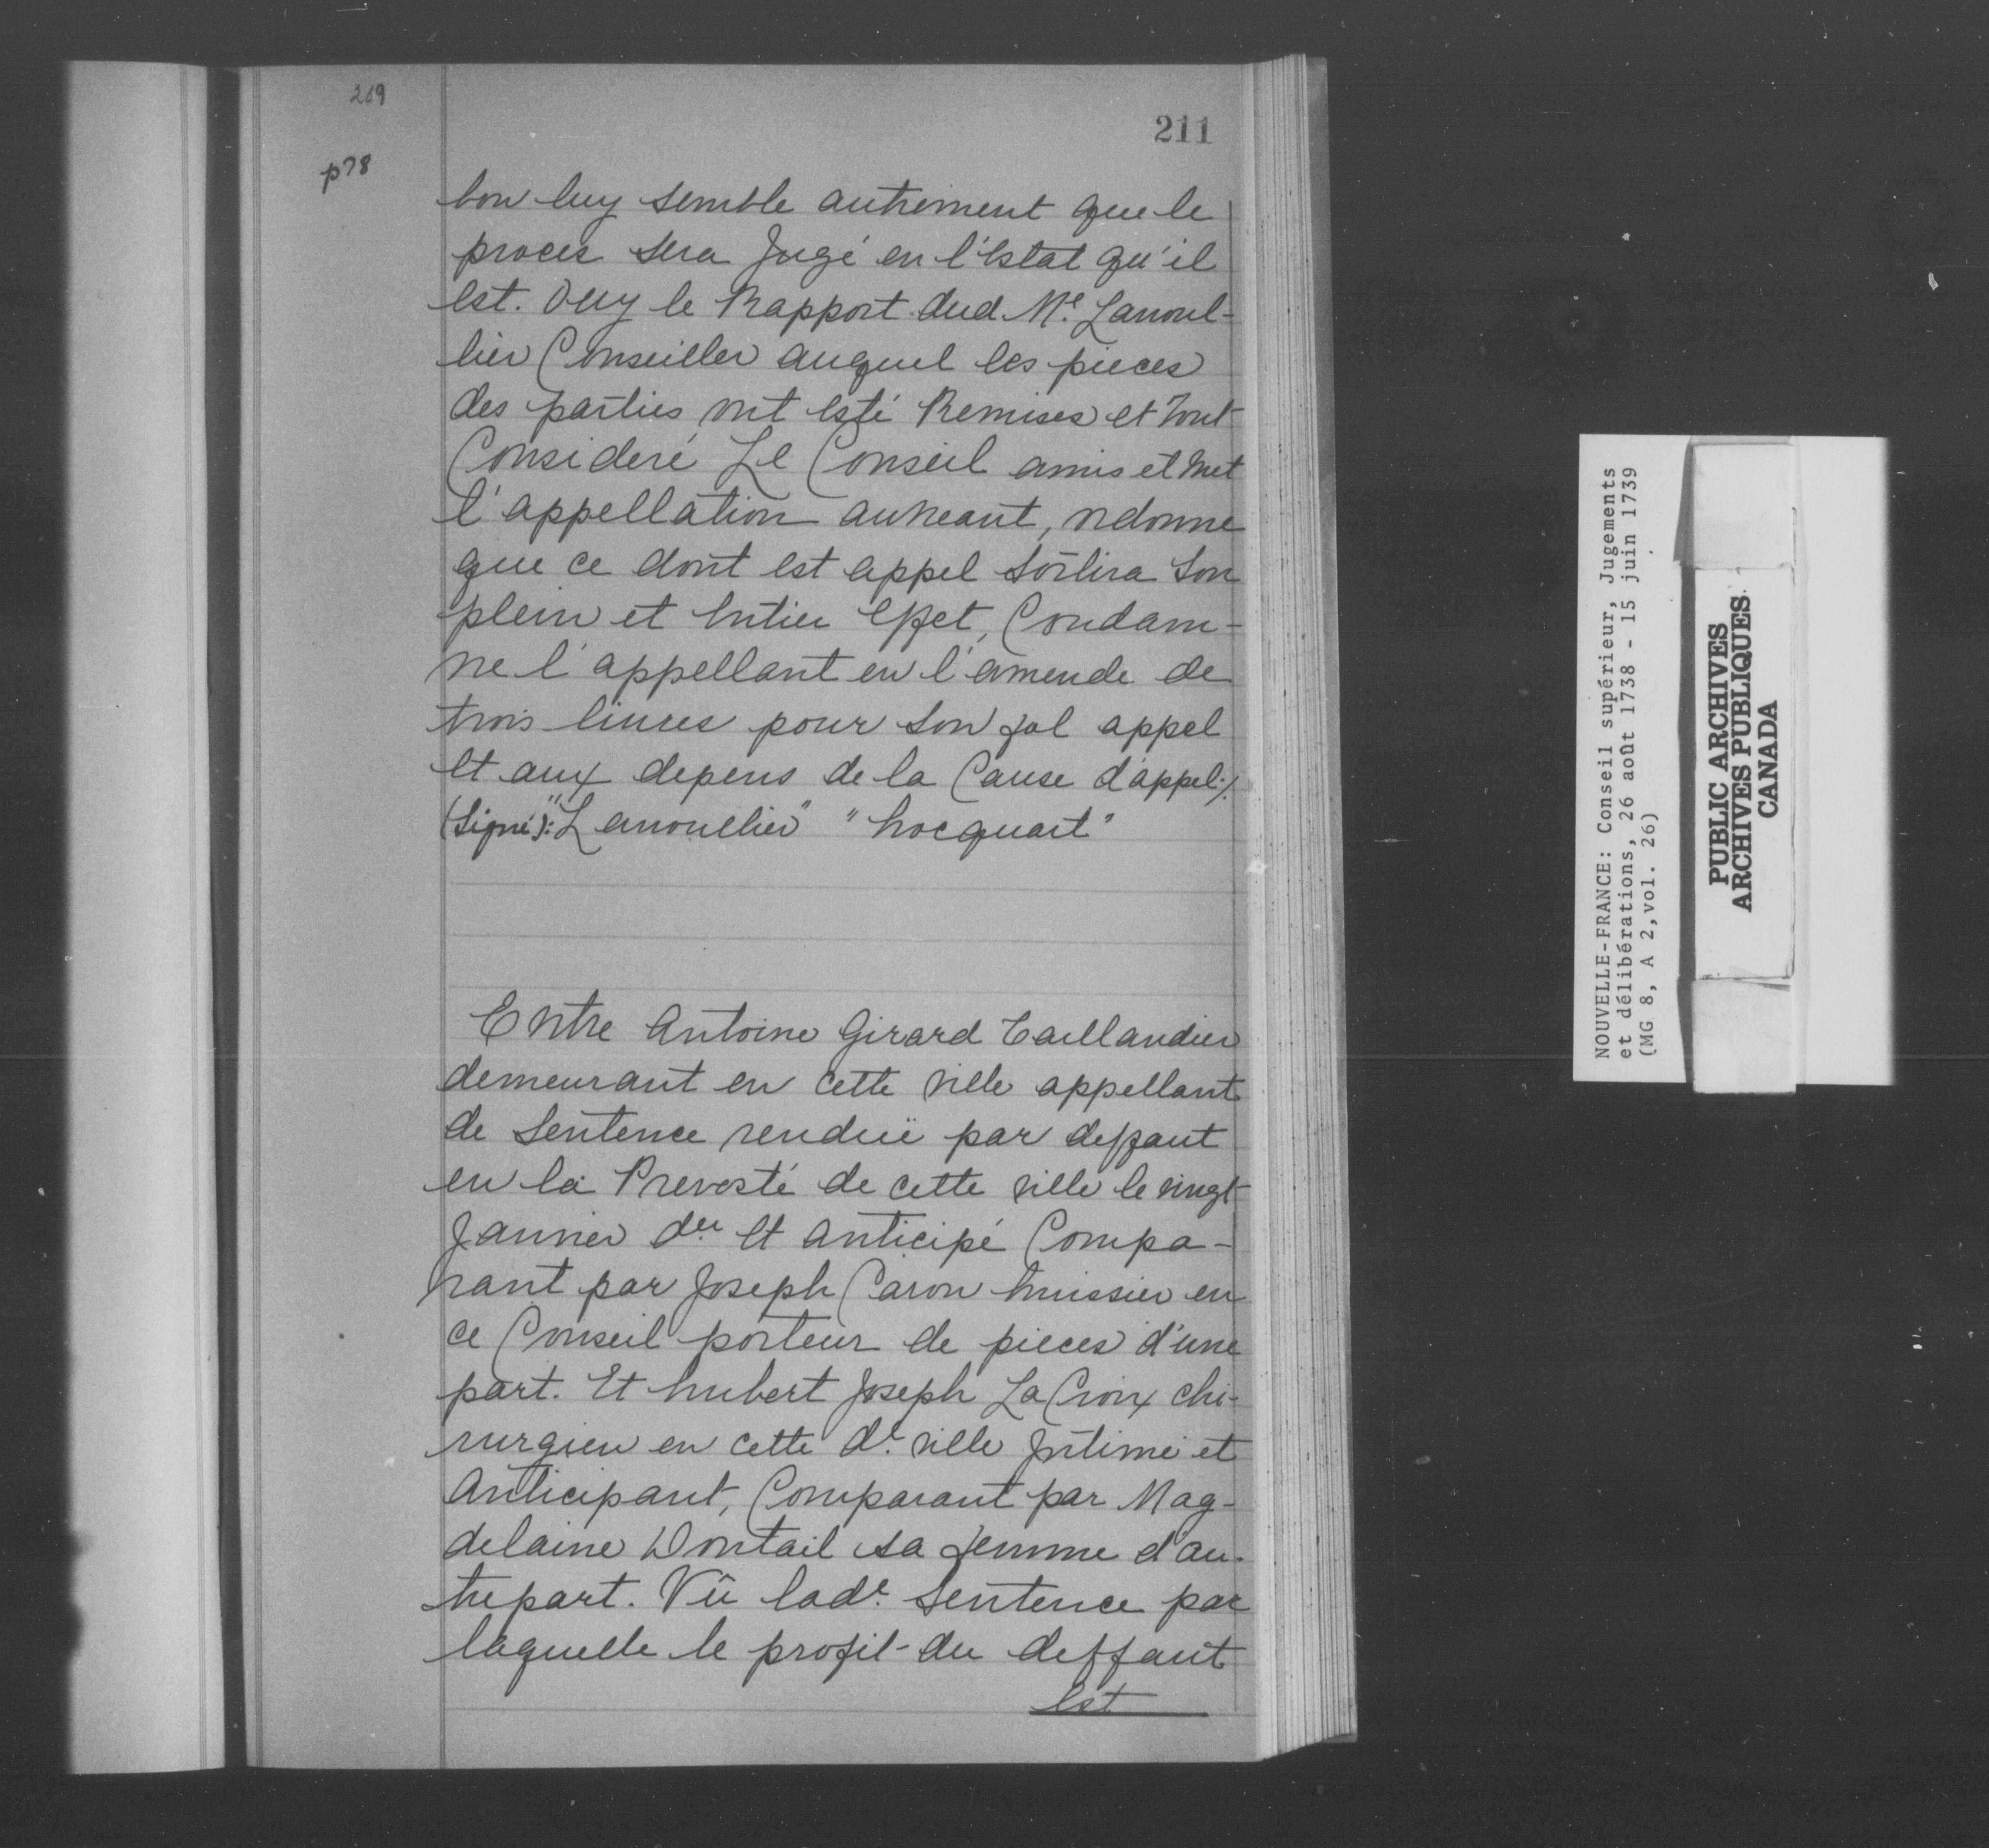 269
211
p78
bon luy semble autrement que le
proces sera Jugé en l'Estat qu'il
Est. Ouy le Rapport dud. Me. Lanoul-
lier Conseiller auquel les pieces
des parties ont esté Remises et Tout
Consideré Le Conseil amis et met
l'appellation auneant, ordonne
que ce dont est appel sortira Son
plein et Entier Effet, Condam-
ne l'appellant en l'amende de
trois liures pour son fol appel
Et aux depens de la Cause d'appel ./.
(Signé): "Lanoullier" "hocquart"
Entre Antoine Girard Taillandier
demeurant en cette ville appellant
de Sentence renduë par deffaut
en la Prevosté de cette ville le vingt
Janvier der. Et anticipé Compa-
rant par Joseph Caron huissier en
ce Conseil porteur de pieces d'une
part. Et hubert Joseph La Croix chi-
rurgien en cette de. ville Intimé et
Anticipant, Comparant par Mag-
delaine Dontail sa femme d'au-
tre part. Vû lade. Sentence par
laquelle le profit du deffaut
Est
NOUVELLE-FRANCE: Conseil supérieur, Jugements
et délibérations, 26 août 1738 - 15 juin 1739
(MG 8, A 2, vol. 26)
PUBLIC ARCHIVES
ARCHIVES PUBLIQUES
CANADA